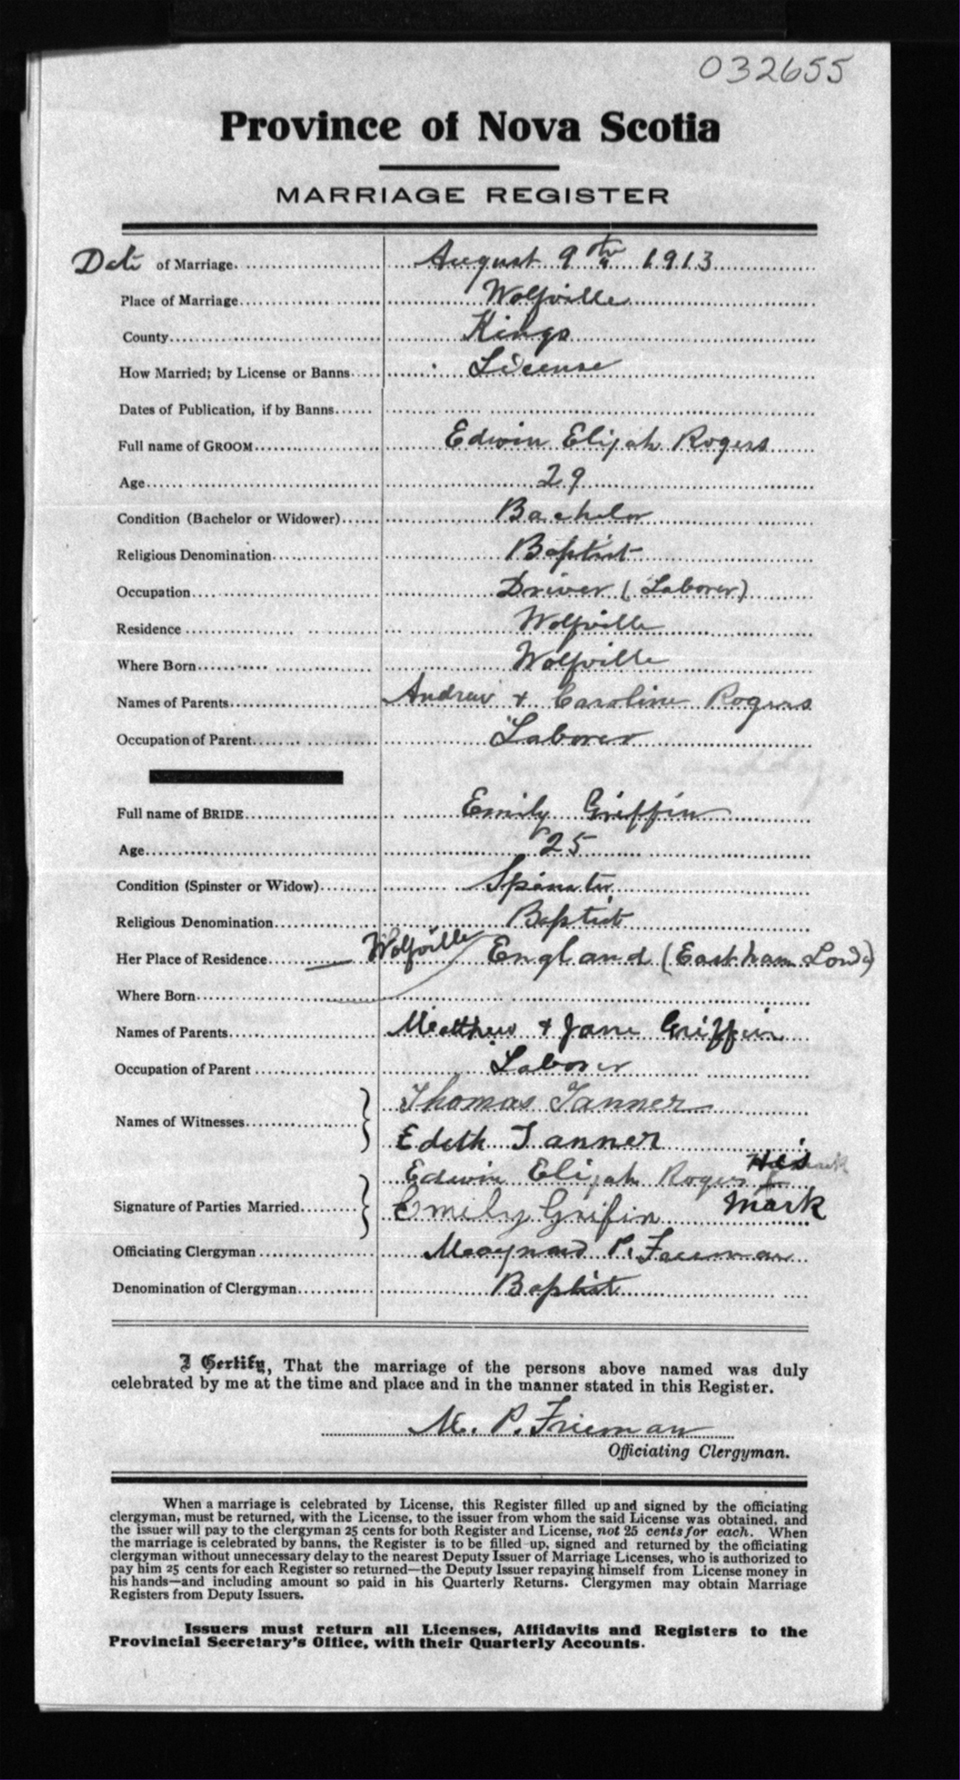 032655
Province of Nova Scotia
MARRIAGE REGISTER
Date of Marriage. August 9th 1913
Place of Marriage Wolfville
County Kings
How Married; by License or Banns License
Dates of Publication, if by Banns
Full name of GROOM Edwin Elijah Rogers
Age 29
Condition (Bachelor or Widower) Bachelor
Religious Denomination Baptist
Occupation Driver (Laborer)
Residence Wolfville
Where Born Wolfville
Names of Parents Andrew & Caroline Rogers
Occupation of Parent Laborer
Full name of BRIDE Emily Griffin
Age 25
Condition (Spinster or Widow) Spinster
Religious Denomination Baptist
Her Place of Residence Wolfville England (East ham
Where Born
Names of Parents Matthew & Jane Griffin
Occupation of Parent Laborer
Names of Witnesses Thomas Tanner
Edith Tanner
Signature of Parties Married Edwin Elijah Rogers His
Emily Grifin Mark
Officiating Clergyman Maynard P. Freeman
Denomination of Clergyman Baptist
I Certify, That the marriage of the persons above named was duly
celebrated by me at the time and place and in the manner stated in this Register.
M. P. Freeman
Officiating Clergyman.
When a marriage is celebrated by License, this Register filled up and signed by the officiating
clergyman, must be returned, with the License, to the issuer from whom the said License was obtained, and
the issuer will pay to the clergyman 25 cents for both Register and License, not 25 cents for each. When
the marriage is celebrated by banns, the Register is to be filled up, signed and returned by the officiating
clergyman without unnecessary delay to the nearest Deputy Issuer of Marriage Licenses, who is authorized to
pay him 25 cents for each Register so returned—the Deputy Issuer repaying himself from License money in
his hands—and including amount so paid in his Quarterly Returns. Clergymen may obtain Marriage
Registers from Deputy Issuers.
Issuers must return all Licenses, Affidavits and Registers to the
Provincial Secretary's Office, with their Quarterly Accounts.